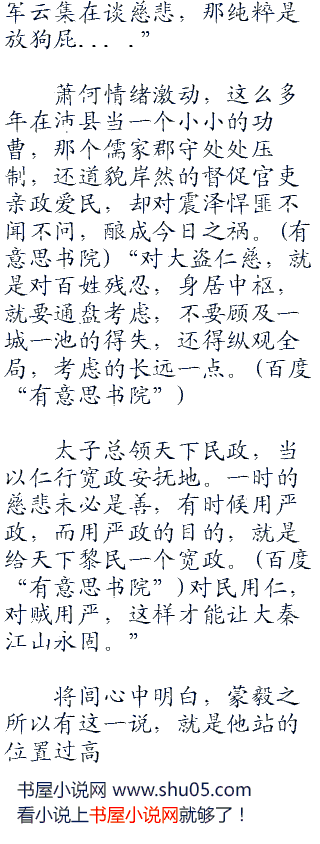 军云集在谈慈悲，那纯粹是
放狗屁．．．．”
萧何情绪激动，这么多
年在沛县当一个小小的功
曹，那个儒家郡守处处压
制，还道貌岸然的督促官吏
亲政爱民，却对震泽悍匪不
闻不问，酿成今日之祸。（有
意思书院）“对大盗仁慈，就
是对百姓残忍，身居中枢，
就要通盘考虑，不要顾及一
城一池的得失，还得纵观全
局，考虑的长远一点。（百度
“有意思书院”）
太子总领天下民政，当
以仁行宽政安抚地。一时的
慈悲未必是善，有时候用严
政，而用严政的目的，就是
给天下黎民一个宽政。（百度
“有意思书院”）对民用仁，
对贼用严，这样才能让大秦
江山永固。”
将闾心中明白，蒙毅之
所以有这一说，就是他站的
位置过高
书屋小说网 www.shu05.com
看小说上书屋小说网就够了！